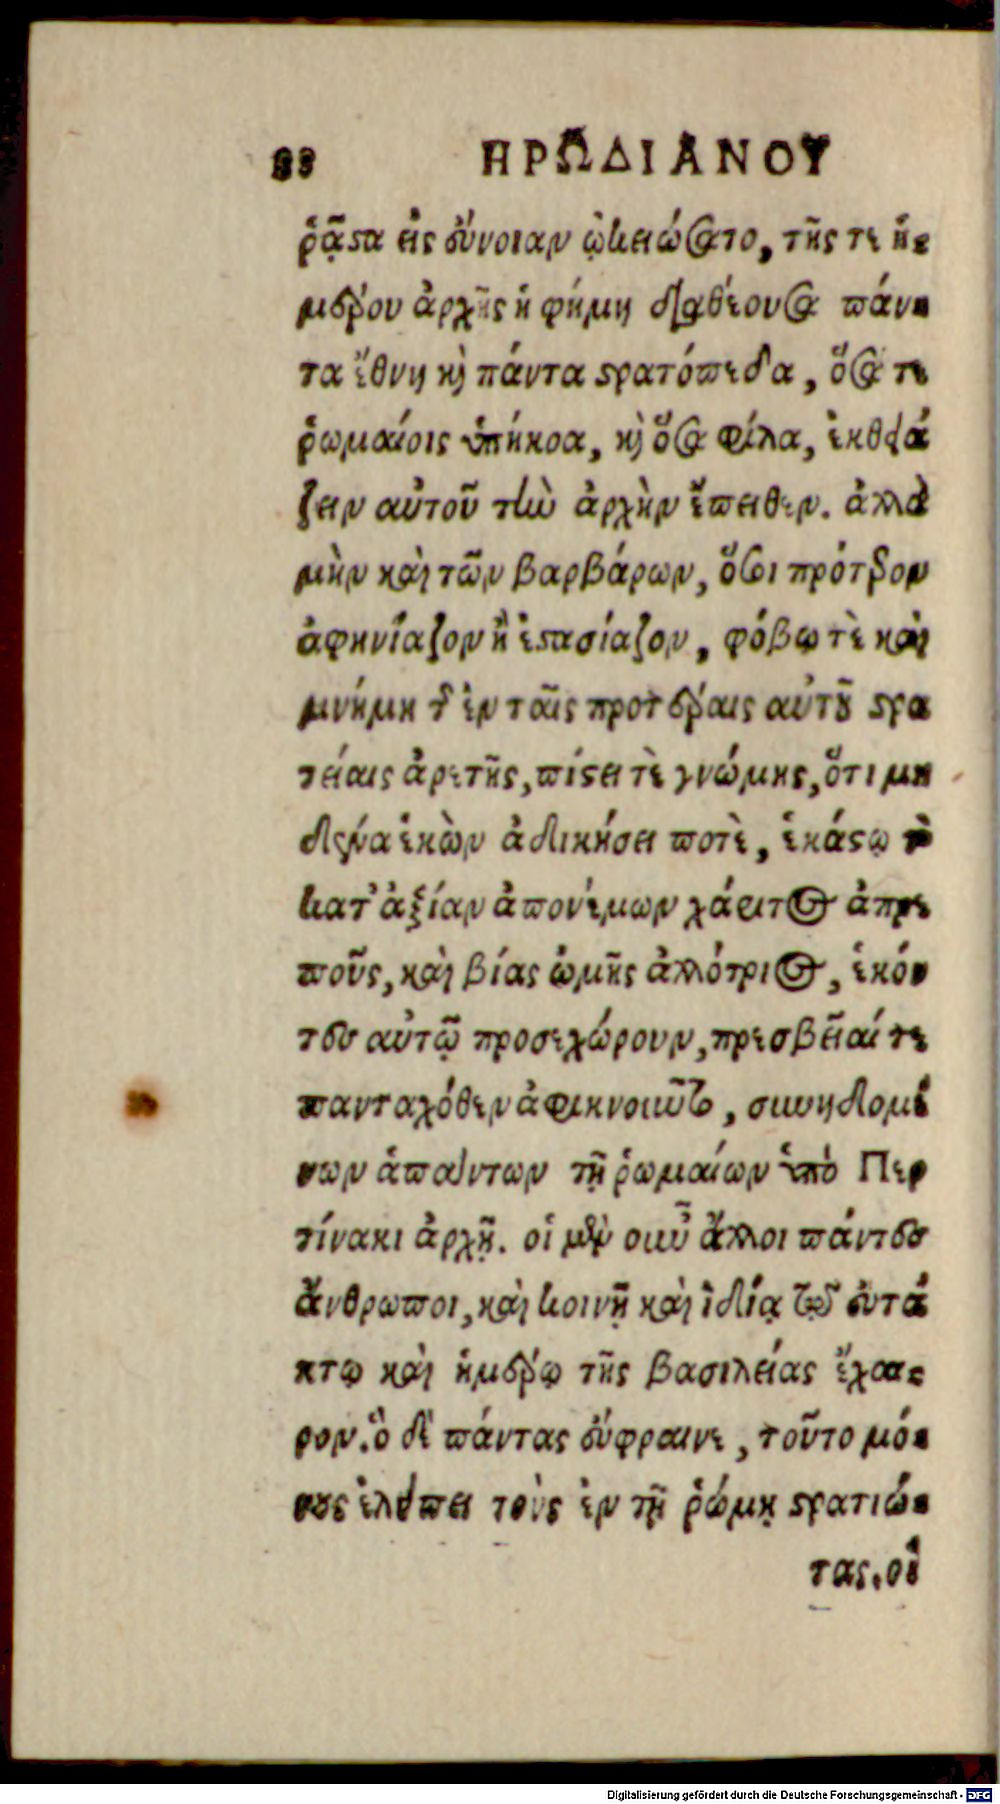 88 ΗΡΩΔΙΑΝΟΥ
ῥᾷστα εἰς εὔνοιαν ᾠκειώσατο, τῆς τε ἡ-
μέρου ἀρχῆς ἡ φήμη διαθέουσα πάν-
τα ἔθνη καὶ πάντα στρατόπεδα, ὅσα τε
ῥωμαίοις ὑπήκοα, καὶ ὅσα φίλα, ἐκθειά
ζειν αὐτοῦ τὴν ἀρχὴν ἔπειθεν. ἀλλὰ
μὴν καὶ τῶν βαρβάρων, ὅσοι πρότερον
ἀφηνίαζον ἢ ἐστασίαζον, φόβῳ τὲ καὶ
μνήμη τ ἐν ταῖς προτέραις αὐτοῦ στρα
τείαις ἀρετῆς, πίστει τὲ γνώμης, ὅτι μη
δένα ἑκὼν ἀδικήσει ποτὲ, ἑκάστῳ τὸ
κατ' ἀξίαν ἀπονέμων χάριτος ἀπρε
ποῦς, καὶ βίας ὠμῆς ἀλλότριος, ἑκόν
τες αὐτῷ προσεχώρουν, πρεσβεῖαί τε
πανταχόθεν ἀφικνοιῶντο, συνηδομέ
νων ἁπάντων τῇ ῥωμαίων ὑπὸ Περ
τίνακι ἀρχῇ. οἱ μὲν οὖν ἄλλοι πάντες
ἄνθρωποι, καὶ κοινῇ καὶ ἰδίᾳ τῷ εὐτά
κτῳ καὶ ἡμέρῳ τῆς βασιλείας ἔχαι-
ρον. ὃ δὲ πάντας εὔφραινε, τοῦτο μό-
νους ἐλύπει τοὺς ἐν τῇ ῥώμῃ στρατιώ-
τας. οἳ
Digitalisierung gefördert durch die Deutsche Forschungsgemeinschaft - DFG